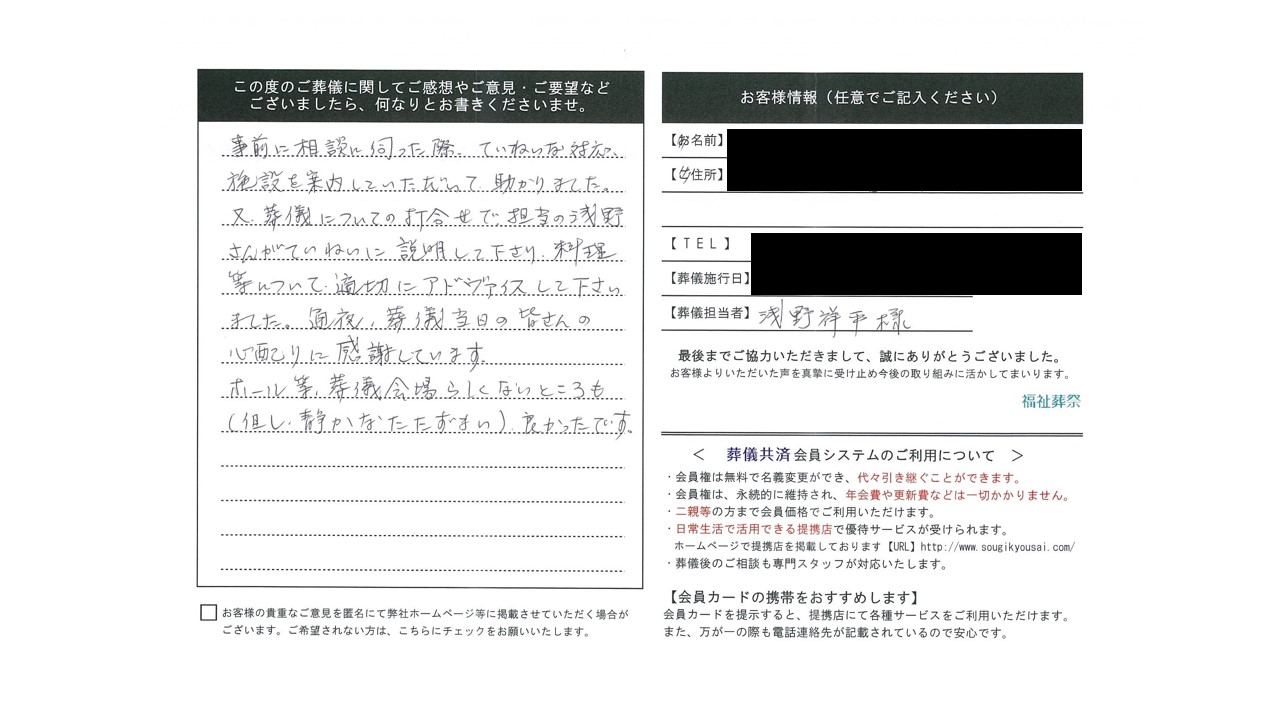 この度のご葬儀に関してご感想やご意見・ご要望など
ございましたら、何なりとお書きくださいませ。
事前に相談に伺った際、ていねいな対応、
施設を案内していただいて助かりました。
又、葬儀についての打合せで、担当の浅野
さんがていねいに説明して下さり、料理
等について、適切にアドヴァイスして下さい
ました。通夜、葬儀当日の皆さんの
心配りに感謝しています。
ホール等、葬儀会場らしくないところも
（但し、静かなたたずまい）、良かったです。
お客様の貴重なご意見を匿名にて弊社ホームページ等に掲載させていただく場合が
ございます。ご希望されない方は、こちらにチェックをお願いいたします。
お客様情報（任意でご記入ください）
【お名前】
【ご住所】
【ＴＥＬ】
【葬儀施行日】
【葬儀担当者】浅野祥平様
最後までご協力いただきまして、誠にありがとうございました。
お客様よりいただいた声を真摯に受け止め今後の取り組みに活かしてまいります。
福祉葬祭
＜ 葬儀共済会員システムのご利用について ＞
・会員権は無料で名義変更ができ、代々引き継ぐことができます。
・会員権は、永続的に維持され、年会費や更新費などは一切かかりません。
・二親等の方まで会員価格でご利用いただけます。
・日常生活で活用できる提携店で優待サービスが受けられます。
ホームページで提携店を掲載しております【URL】http://www.sougikyousai.com/
・葬儀後のご相談も専門スタッフが対応いたします。
【会員カードの携帯をおすすめします】
会員カードを提示すると、提携店にて各種サービスをご利用いただけます。
また、万が一の際も電話連絡先が記載されているので安心です。